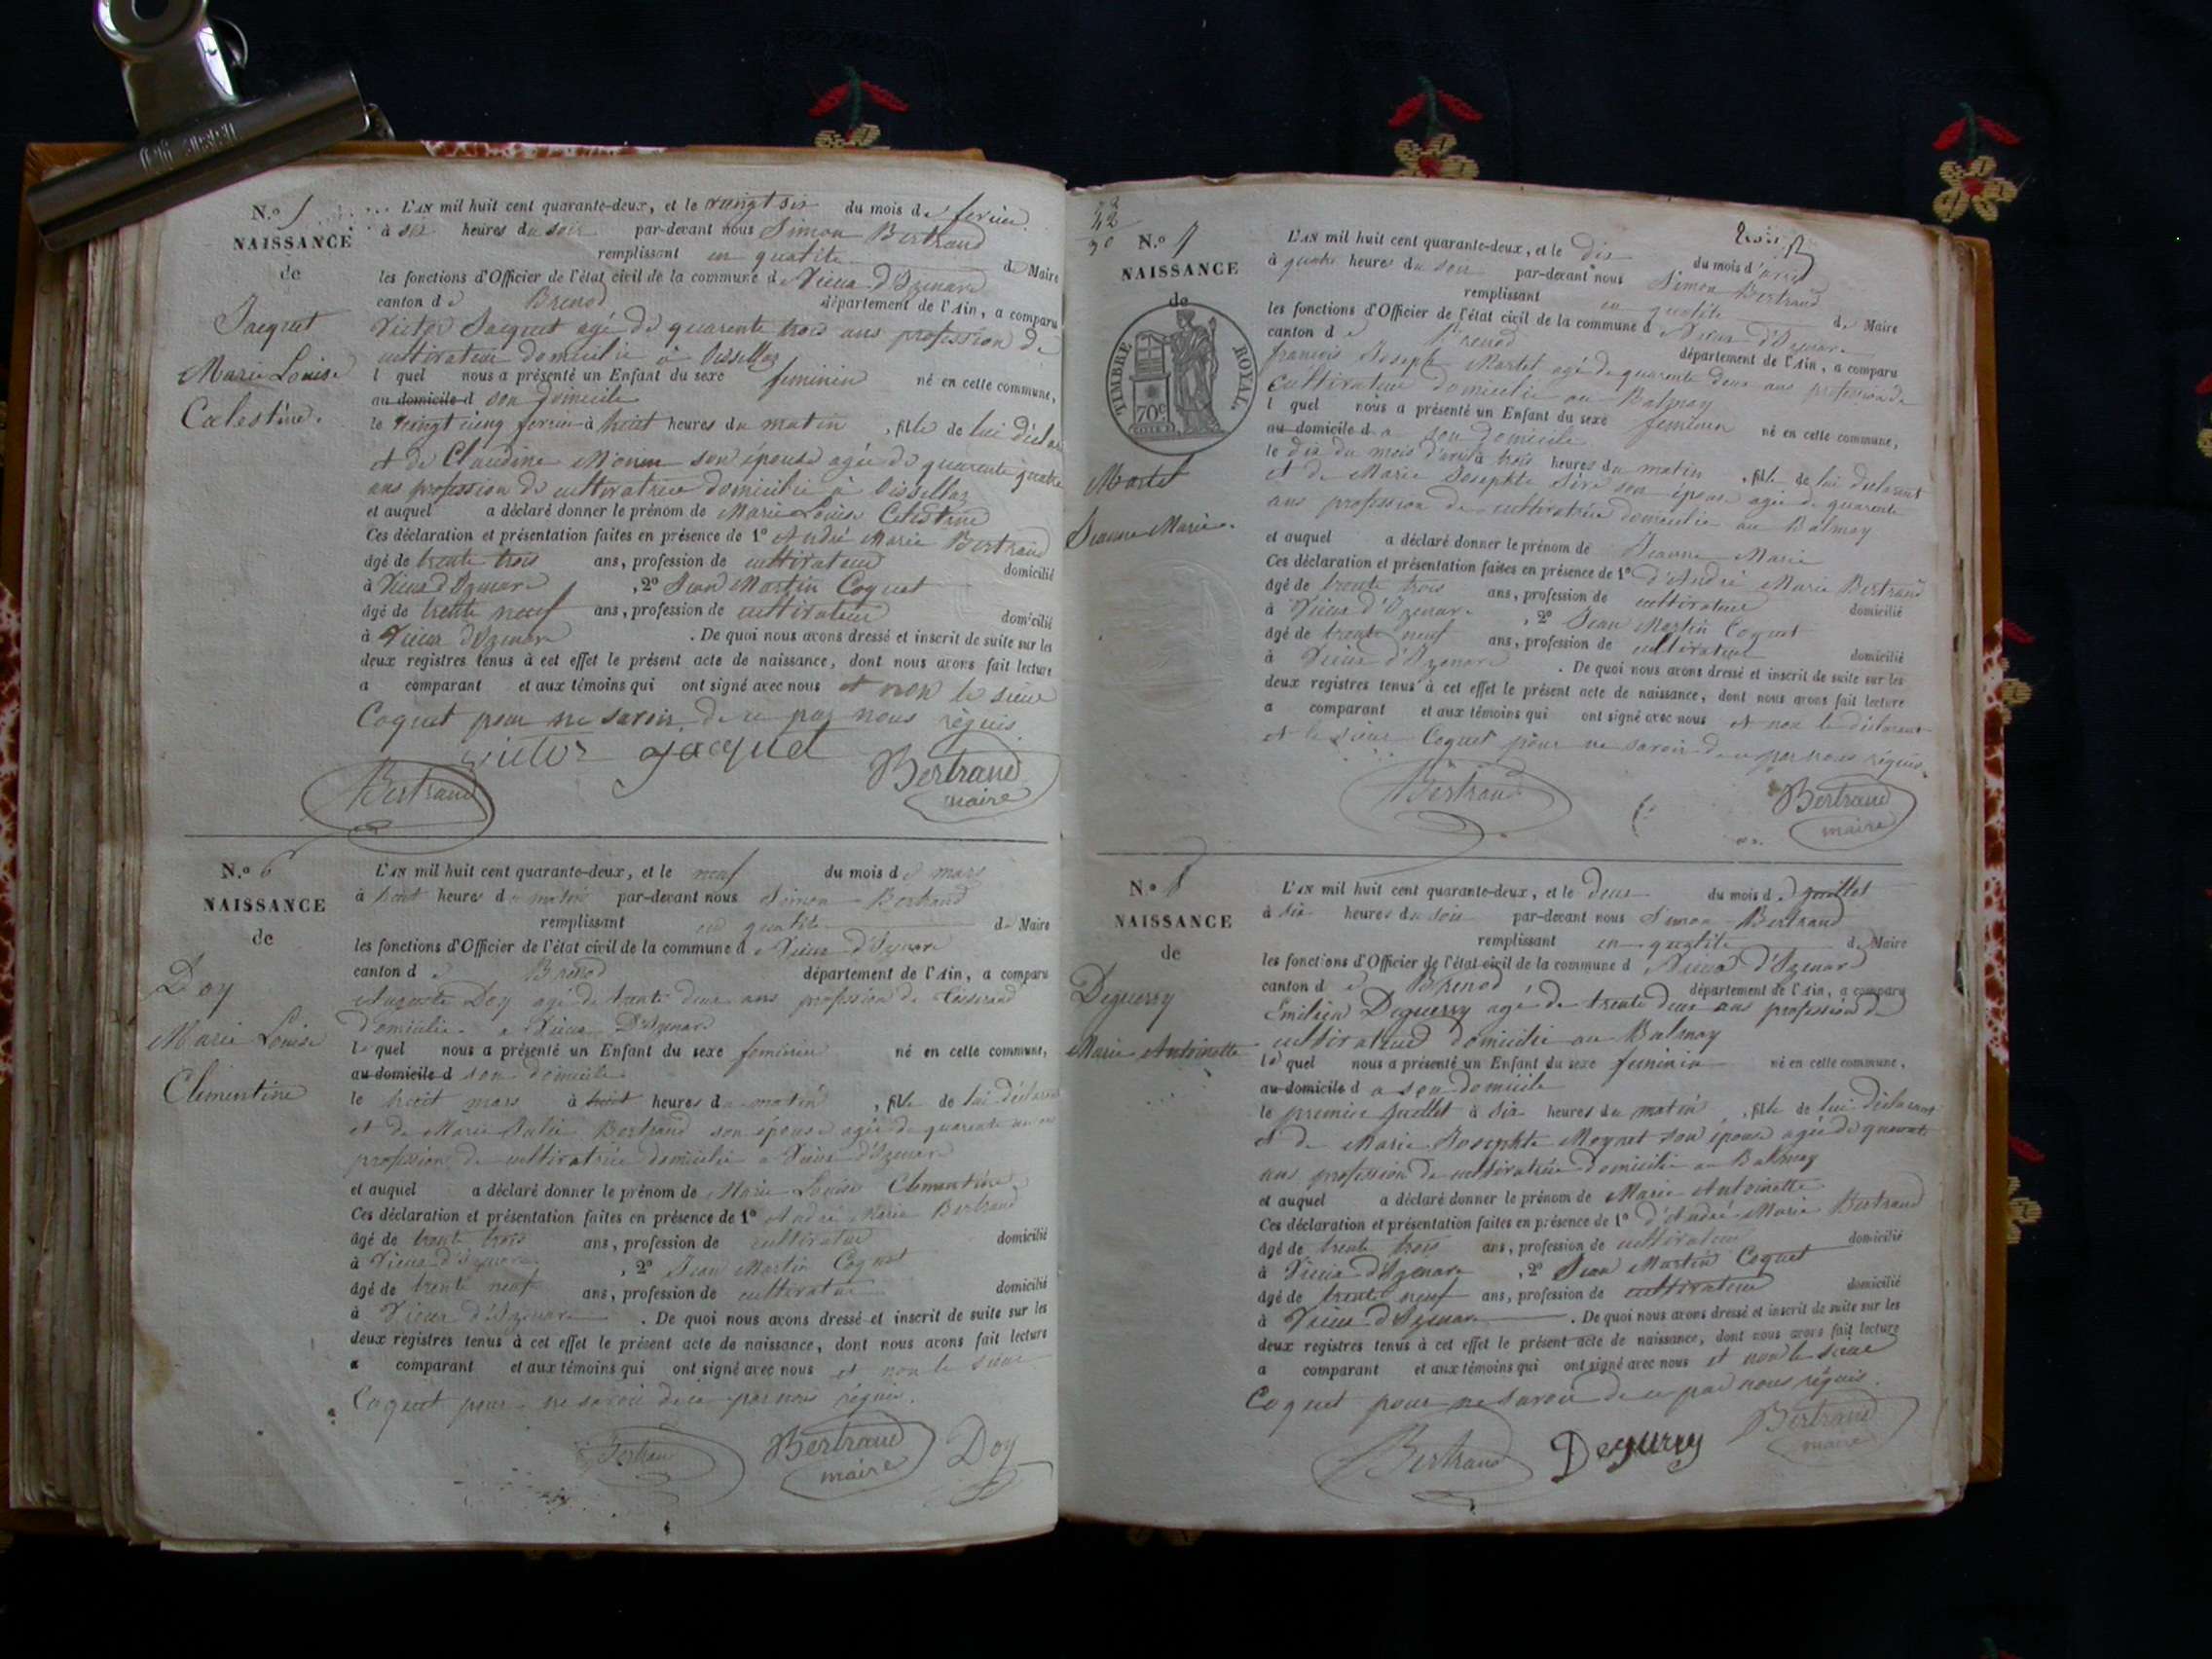 N.o 5
NAISSANCE
de
Jacquet
Marie Louise
Cœlestine.
L'AN mil huit cent quarante-deux, et le vingt six du mois de fevrier
à six heures du soir par-devant nous Simon Bertrand
remplissant en qualité de Maire
les fonctions d'Officier de l'état civil de la commune de Vieux d'Izenave
canton de Brenod département de l'Ain, a comparu
Victor Jacquet agé de quarente trois ans profession de
cultivateur domicilié à
l quel nous a présenté un Enfant du sexe feminin né en cette commune,
au domicile d son domicile
le vingt cinq fevrier à huit heures du matin, fille de lui déclar
et de Claudine son épouse agée de quarente quatre
ans profession de cultivatrice domicilié à
et auquel a déclaré donner le prénom de Marie Louise Celestine
Ces déclaration et présentation faites en présence de 1o André Marie Bertrand
âgé de trente trois ans, profession de cultivateur domicilié
à Vieux d'Izenave, 2o Jean Martin Coquet
âgé de trente neuf ans, profession de cultivateur domicilié
à Vieux d'Izenave. De quoi nous avons dressé et inscrit de suite sur les
deux registres tenus à cet effet le présent acte de naissance, dont nous avons fait lecture
a comparant et aux témoins qui ont signé avec nous et non le sieur
Coquet pour ne savoir de ce par nous réquis.
Victor jacquet
Bertrand
Bertrand
maire
N.o 6
NAISSANCE
de
Doy
Marie Louise
Clementine
L'AN mil huit cent quarante-deux, et le neuf du mois de mars
à huit heures du matin par-devant nous Simon Bertrand
remplissant en qualité de Maire
les fonctions d'Officier de l'état civil de la commune de Vieux d'Izenave
canton de Brenod département de l'Ain, a comparu
Auguste Doy agé de trente deux ans profession de Tisserand
domicilié a Vieux D'Izenave
le quel nous a présenté un Enfant du sexe feminin né en cette commune,
au domicile d son domicile
le huit mars à huit heures du matin, fille de lui déclarant
et de Marie Julie Bertrand son épouse agée de quarente un ans
profession de cultivatrice domicilié a Vieux d'Izenave
et auquel a déclaré donner le prénom de Marie Louise Clementine
Ces déclaration et présentation faites en présence de 1o André Marie Bertrand
âgé de trente trois ans, profession de cultivateur domicilié
à Vieux d'Izenave, 2o Jean Martin Coquet
âgé de trente neuf ans, profession de cultivateur domicilié
à Vieux d'Izenave. De quoi nous avons dressé et inscrit de suite sur les
deux registres tenus à cet effet le présent acte de naissance, dont nous avons fait lecture
a comparant et aux témoins qui ont signé avec nous et non le sieur
Coquet pour ne savoir de ce par nous réquis.
Bertrand
Bertrand
maire
Doy
N.o 7
NAISSANCE
de
TIMBRE ROYAL.
70c
Martel
Jeanne Marie.
L'AN mil huit cent quarante-deux, et le dix du mois d'avril
à quatre heures du soir par-devant nous Simon Bertrand
remplissant en qualité de Maire
les fonctions d'Officier de l'état civil de la commune de Vieux d'Izenave
canton de Brenod département de l'Ain, a comparu
françois Joseph Martel agé de quarente deux ans profession de
cultivateur domicilié au Balmay
l quel nous a présenté un Enfant du sexe feminin né en cette commune,
au domicile d a son domicile
le dix du mois d'avril à trois heures du matin, fille de lui déclarant
et de Marie Josephte son épouse agée de quarente
ans profession de cultivatrice domicilié au Balmay
et auquel a déclaré donner le prénom de Jeanne Marie
Ces déclaration et présentation faites en présence de 1o d'André Marie Bertrand
âgé de trente trois ans, profession de cultivateur domicilié
à Vieux d'Izenave, 2o Jean Martin Coquet
âgé de trente neuf ans, profession de cultivateur domicilié
à Vieux d'Izenave. De quoi nous avons dressé et inscrit de suite sur les
deux registres tenus à cet effet le présent acte de naissance, dont nous avons fait lecture
a comparant et aux témoins qui ont signé avec nous et non le déclarant
et le sieur Coquet pour ne savoir de ce par nous réquis.
Bertrand
Bertrand
maire
N.o 8
NAISSANCE
de
Deguerry
Marie Antoinette
L'AN mil huit cent quarante-deux, et le deux du mois de juillet
à six heures du soir par-devant nous Simon Bertrand
remplissant en qualité de Maire
les fonctions d'Officier de l'état civil de la commune d Vieux d'Izenave
canton de Brenod département de l'Ain, a comparu
Emilien Deguerry agé de trente deux ans profession de
cultivateur domicilié au Balmay
le quel nous a présenté un Enfant du sexe feminin né en cette commune,
au domicile d a son domicile
le premier juillet à six heures du matin, fille de lui déclarant
et de Marie Josephte Moynet son épouse agée de quarente
ans profession de cultivatrice domicilié au Balmay
et auquel a déclaré donner le prénom de Marie Antoinette
Ces déclaration et présentation faites en présence de 1o d'André Marie Bertrand
âgé de trente trois ans, profession de cultivateur domicilié
à Vieux d'Izenave, 2o Jean Martin Coquet
âgé de trente neuf ans, profession de cultivateur domicilié
à Vieux d'Izenave. De quoi nous avons dressé et inscrit de suite sur les
deux registres tenus à cet effet le présent acte de naissance, dont nous avons fait lecture
a comparant et aux témoins qui ont signé avec nous et non le sieur
Coquet pour ne savoir de ce par nous réquis.
Bertrand
Deguerry
Bertrand
maire